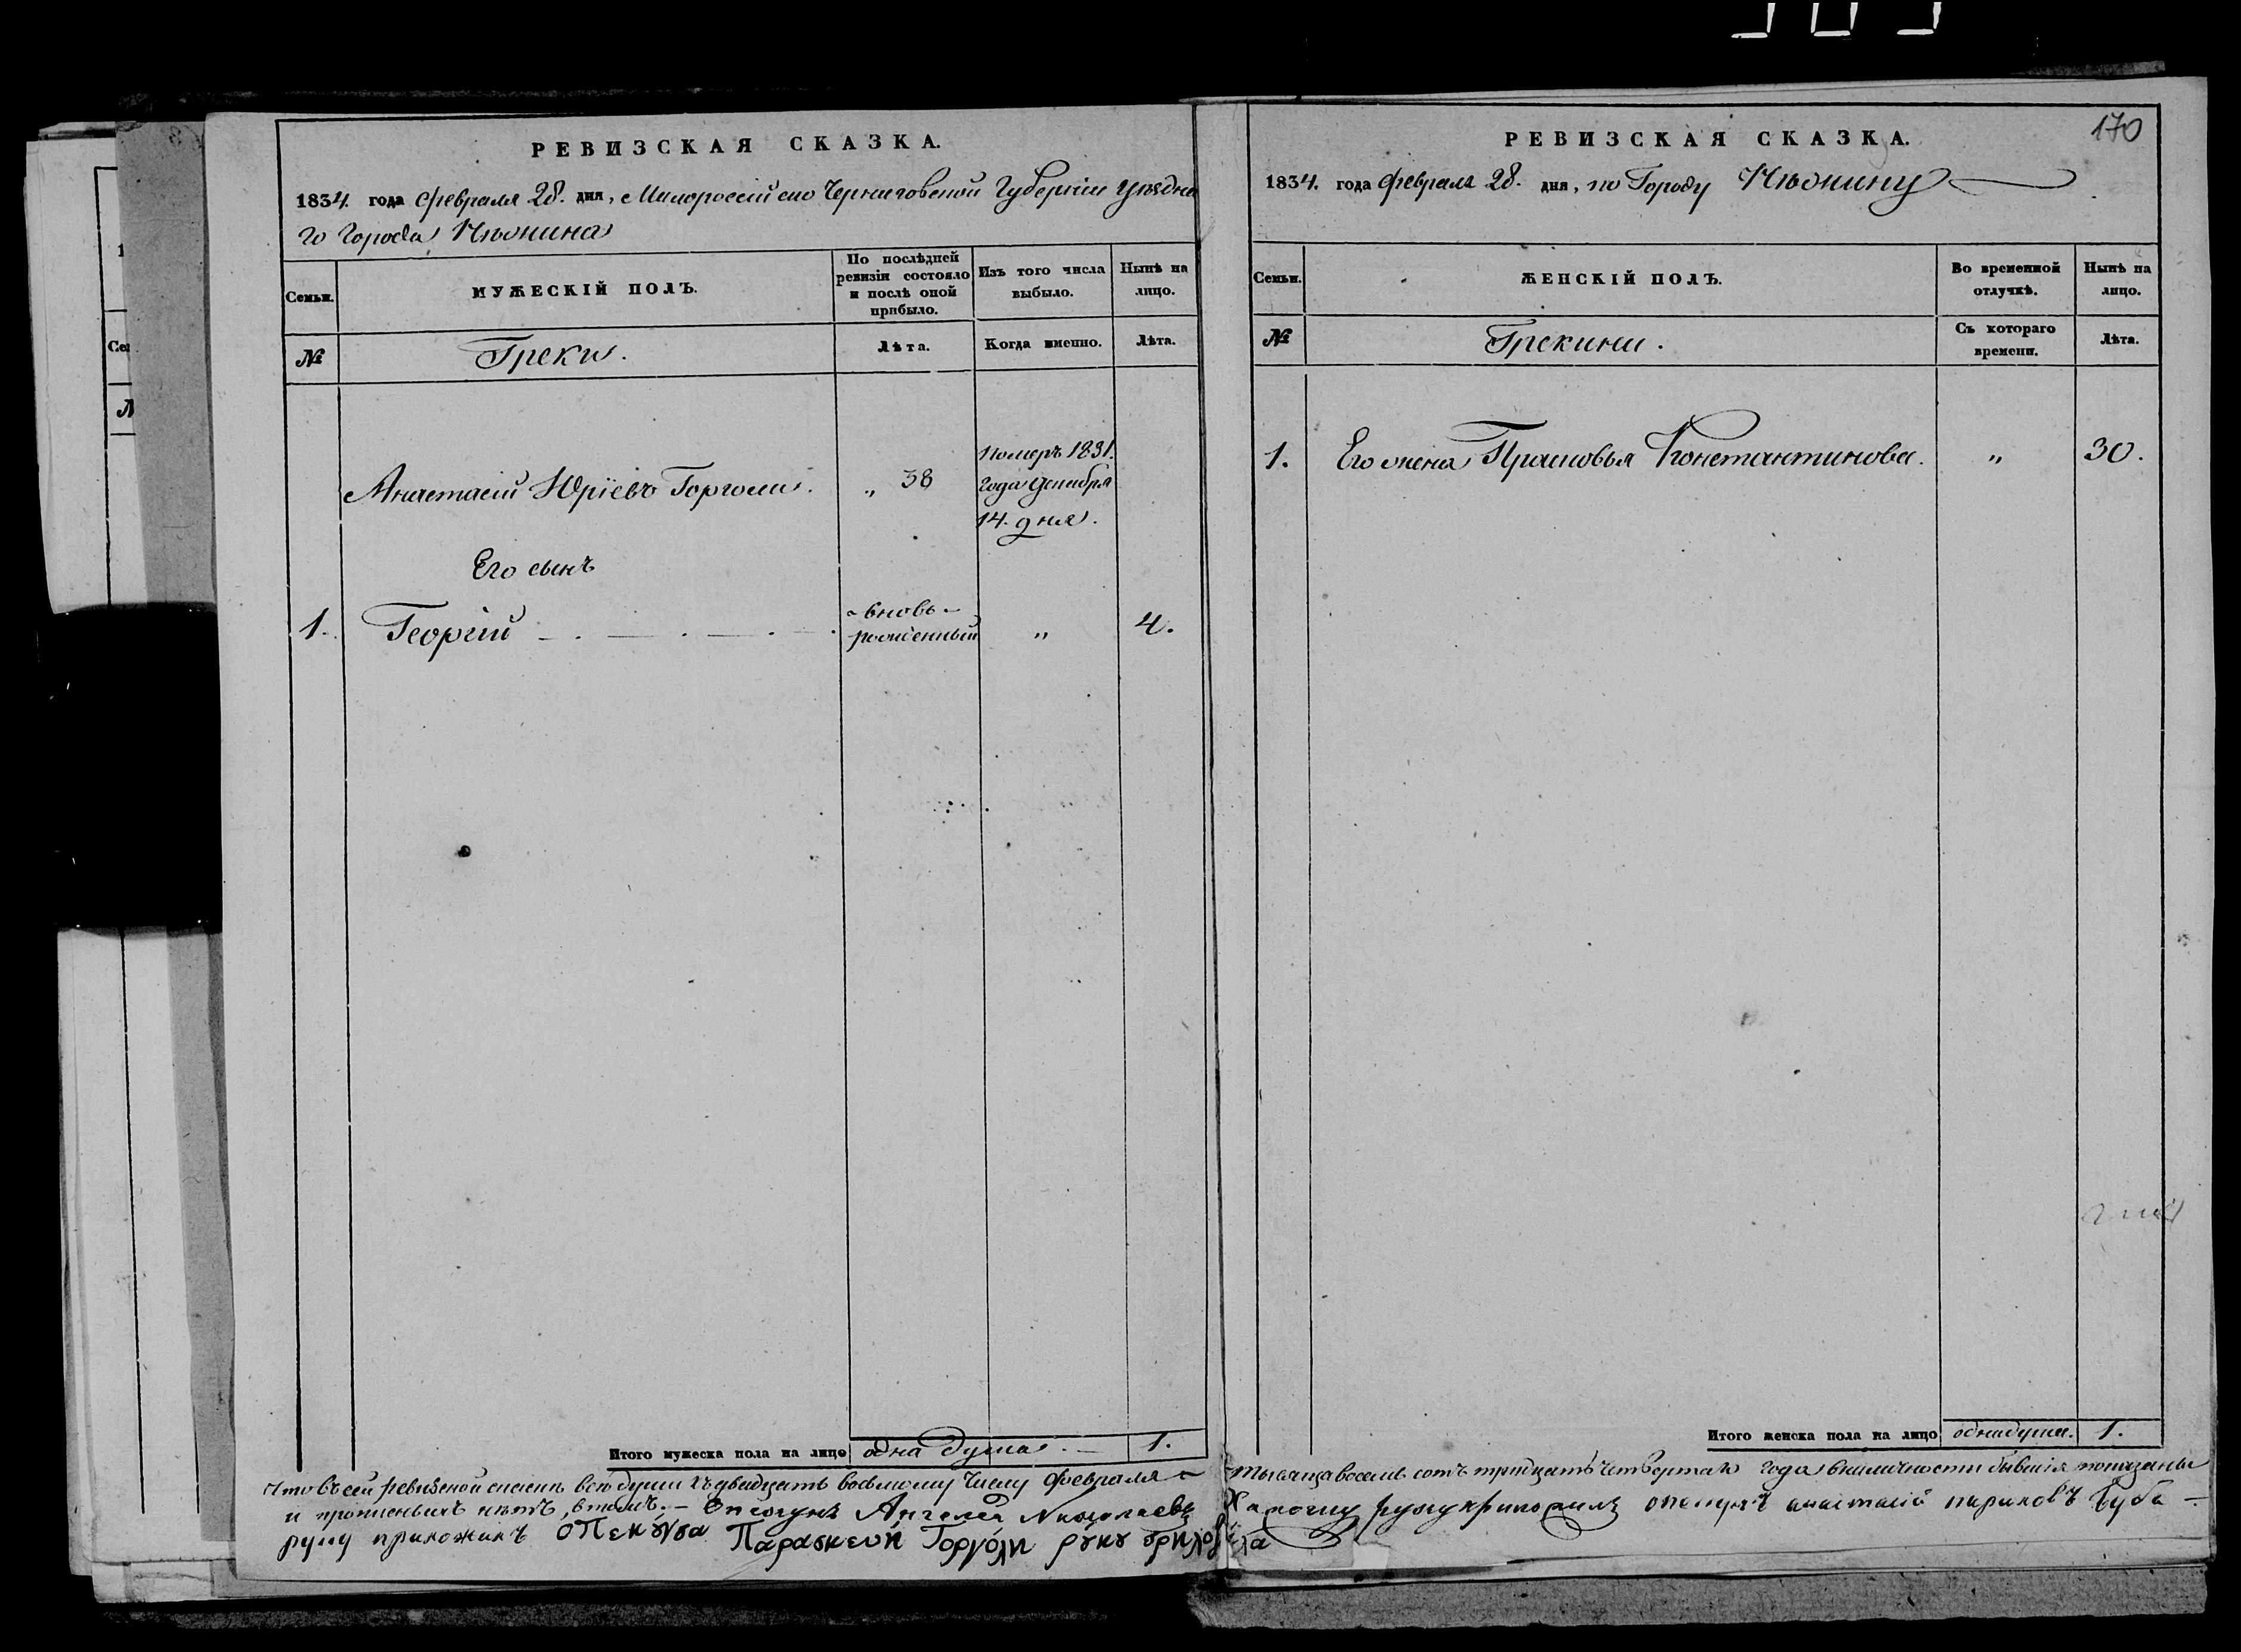 РЕВИЗСКАЯ СКАЗКА.
1834. года февраля 28. дня, Малороссійско Черниговской Губерніи уѣздна
го города Нѣжина
Семьи.
МУЖЕСКІЙ ПОЛЪ.
По послѣдней ревизіи состояло и послѣ оной прибыло.
Изъ того числа выбыло.
Нынѣ на лицо.
№
Греки.
Лѣта.
Когда именно.
Лѣта.
Анастасій Юріевъ Горголи.
„ 38
Померъ 1831.
года Декабря
14. дня.
Его сынъ
1. Георгій
вновь
рожденный
„
4.
Итого мужеска пола на лицо
одна душа.
1.
170
РЕВИЗСКАЯ СКАЗКА.
1834. года февраля 28. дня, по Городу Нѣжину
Семьи.
ЖЕНСКІЙ ПОЛЪ.
Во временной отлучкѣ.
Нынѣ на лицо.
№
Грекини.
Съ котораго времени.
Лѣта.
1. Его жена Прасковья Константинова.
„
30.
Итого женска пола на лицо
одна душа.
1.
Что въ сей ревизской сказкѣ всѣ души къ двадцать восьмому числу февраля тысяща восемь сотъ тридцать четвертаго года въ наличности бывшія показаны
и прописныхъ нѣтъ, въ томъ. Опекунъ Николаевъ опекунъ анастасій
руку приложилъ опекунша Параскеви Горголи руку